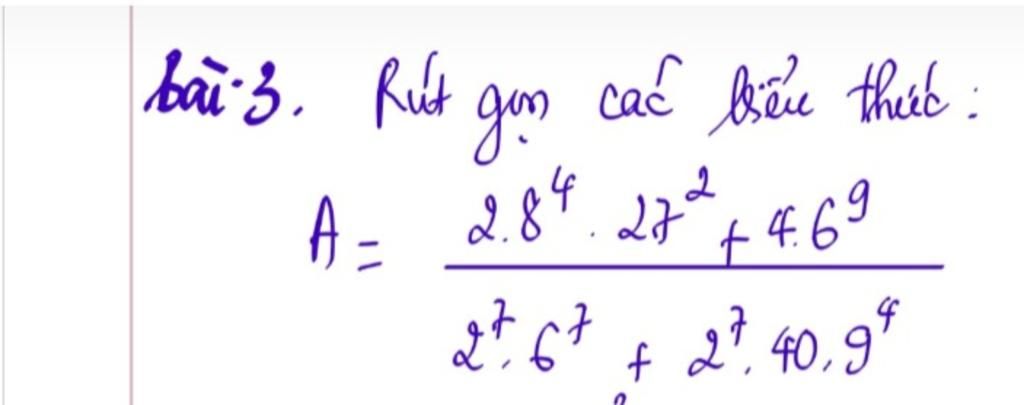 bài 3. Rút gọn các biểu thức:
A = (2.8⁴.27² + 4.6⁹) / (2⁷.6⁷ + 2⁷.40.9⁴)